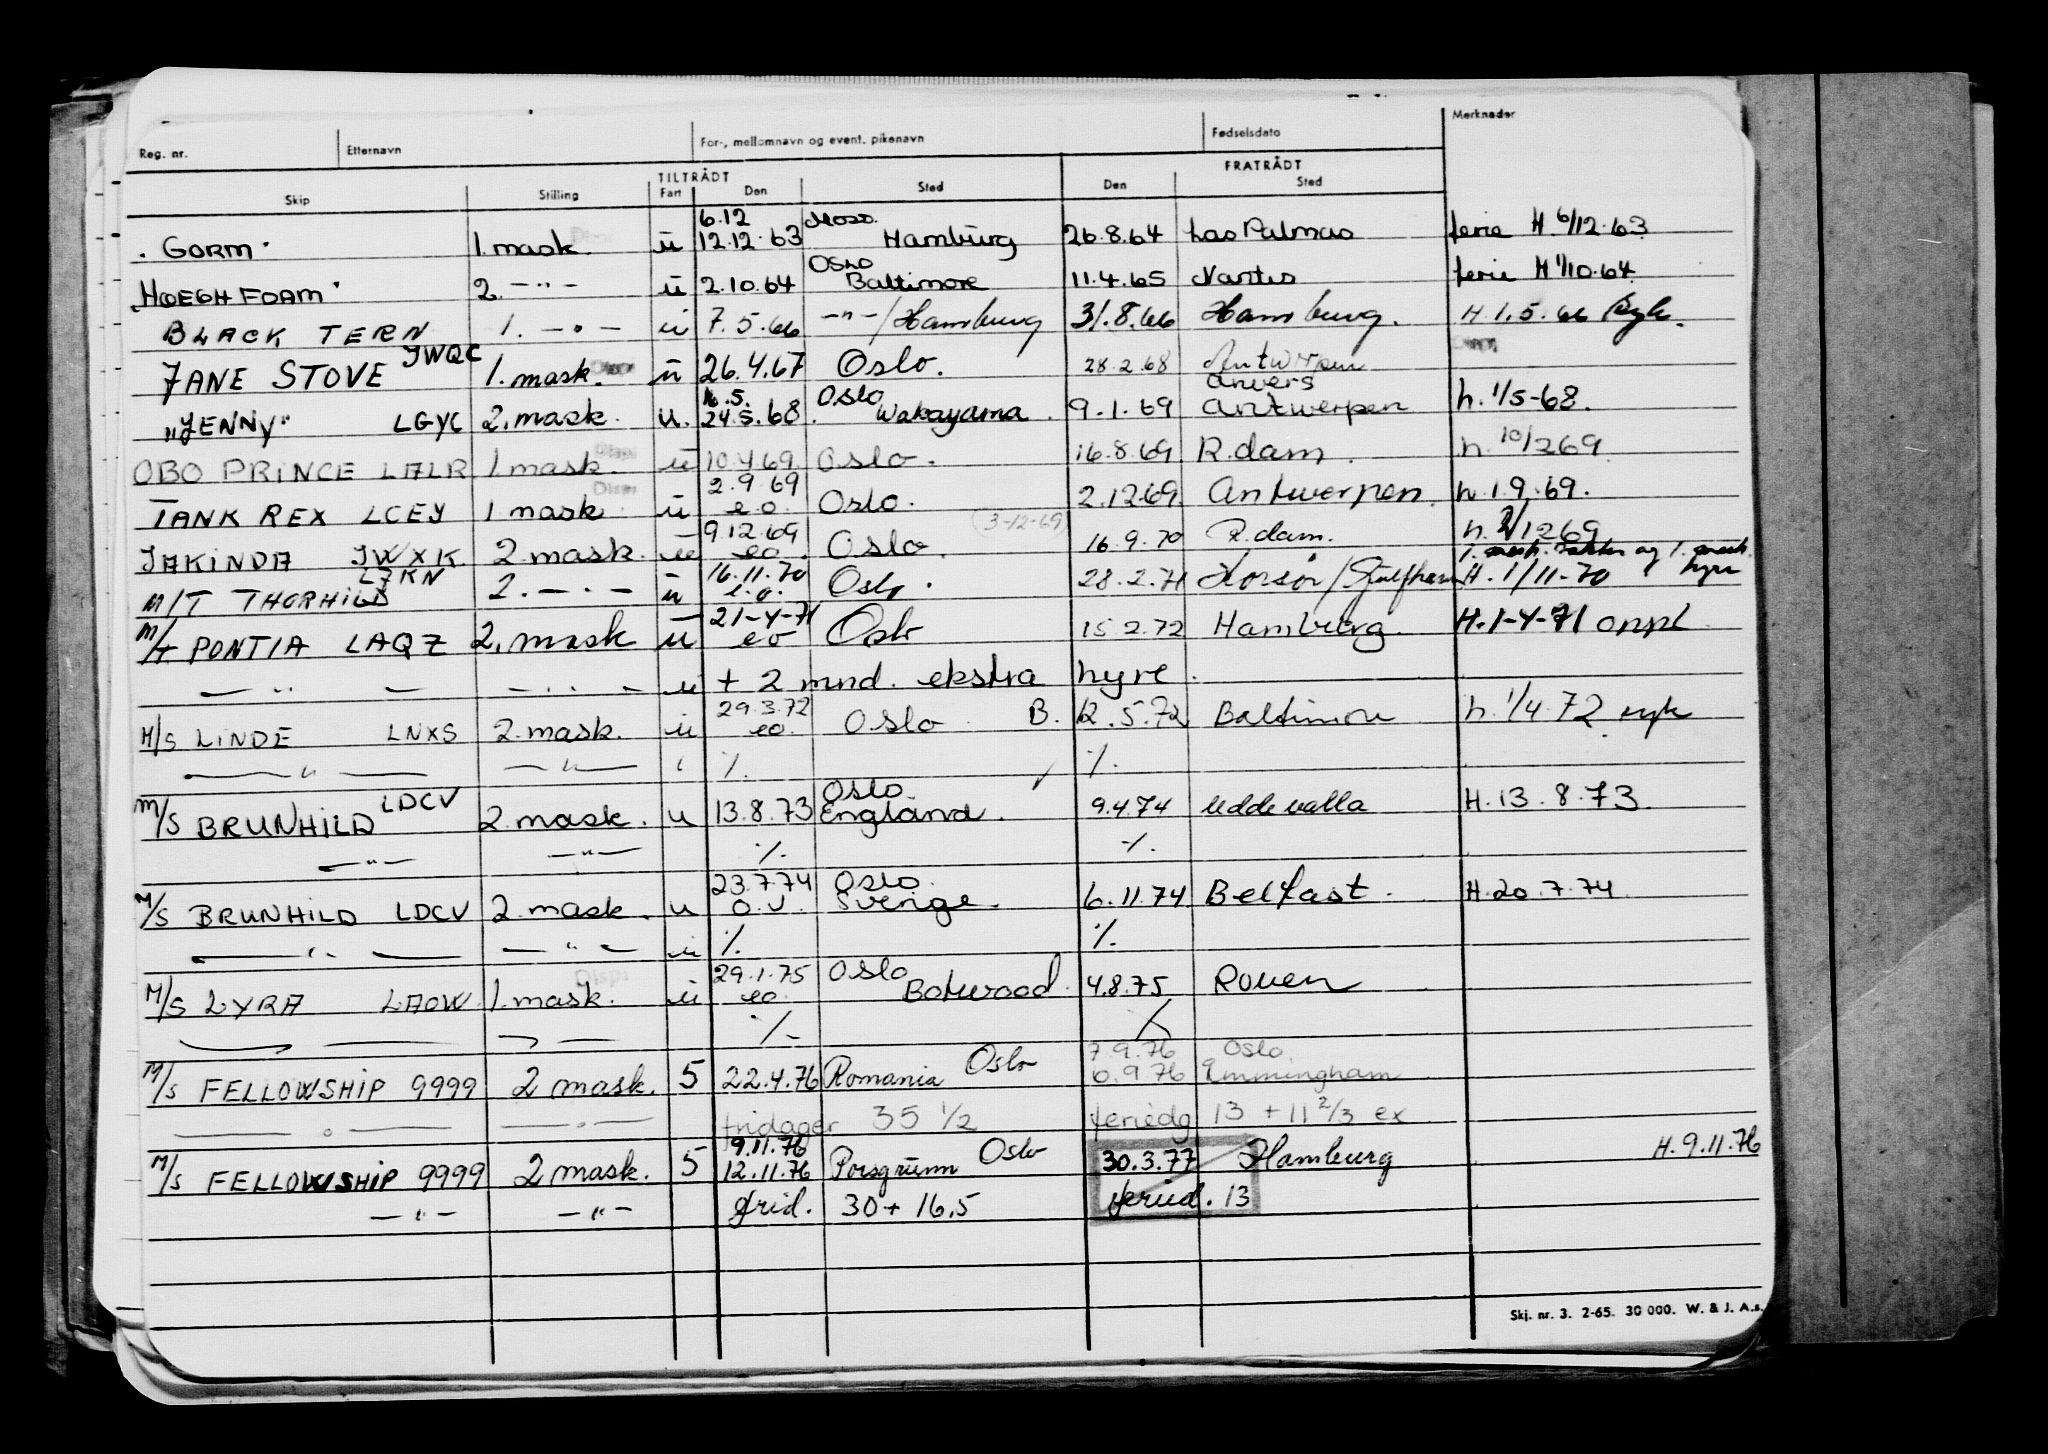 Reg. nr. Etternavn For-, mellomnavn og event. pikenavn Fødselsdato Merknader
TILTRÅDT FRATRÅDT
Skip Stilling Fart Den Sted Den Sted
6.12 Moss.
"GORM" 1. mask. ü 12.12.63 Hamburg 26.8.64 Las Palmas ferie H 6/12.63
Oslo
HØEGH FOAM" 2. -"- ü 2.10.64 Baltimore 11.4.65 Nantes ferie H 1/10.64
BLACK TERN 1. -"- ü 7.5.66 -"-/Hamburg 31.8.66 Hamburg. H 1.5.66
JANE STOVE JWQC 1. mask. ü 26.4.67 Oslo. 28.2.68 Antwerpen
16.5. Oslo Anvers
"JENNY" LGYC 2. mask. u. 24.5.68. Wakayama. 9.1.69 Antwerpen h. 1/5-68.
OBO PRINCE LALR 1. mask. ü 10.4.69. Oslo. 16.8.69 R.dam. h. 10/2 69.
2.9.69
TANK REX LCEY 1 mask ü e.o. Oslo. 2.12.69. Antwerpen. h. 1.9.69.
9.12.69 (3-12-69)
JAKINDA JWXK 2 mask. u eo. Oslo. 16.9.70 R.dam. h. 2/12 69
16.11.70
M/T THORHILD LJKN 2. -"- ü e.o. Oslo. 28.2.71 Korsør/ H. 1/11-70 hyre
21-4-71
M/T PONTIA LAQZ 2. mask ü eo Oslo 15.2.72 Hamburg. H. 1-4-71
-"- -"- u + 2 mnd. ekstra hyre.
29.3.72
M/S LINDE LNXS 2. mask. ü eo. Oslo B. 12.5.72 Baltimore h. 1/4 72
-"- -"- ٪ ٪
Oslo.
M/S BRUNHILD LDCV 2. mask. u 13.8.73 England. 9.4.74 Uddevalla H. 13.8.73.
-"- -"- ٪ ٪
23.7.74 Oslo.
M/S BRUNHILD LDCV 2. mask. u o.v. Sverige. 6.11.74 Belfast. H. 20.7.74.
-"- -"- ü ٪ ٪
29.1.75 Oslo
M/S LYRA LAOW. 1. mask. ü eo. Botwood. 4.8.75 Rouen
٪ ٪
7.9.76 Oslo.
M/S FELLOWSHIP 9999 2 mask. 5 22.4.76 Romania Oslo 6.9.76 Immingham
-"- -"- fridager 35 1/2 feriedg 13 + 11 2/3 ex
9.11.76
M/S FELLOWSHIP 9999 2 mask. 5 12.11.76 Porsgrunn Oslo 30.3.77 Hamburg H. 9.11.76
-"- -"- frid. 30 + 16,5 feried. 13
Skj. nr. 3. 2-65. 30 000. W. & J. A.s.